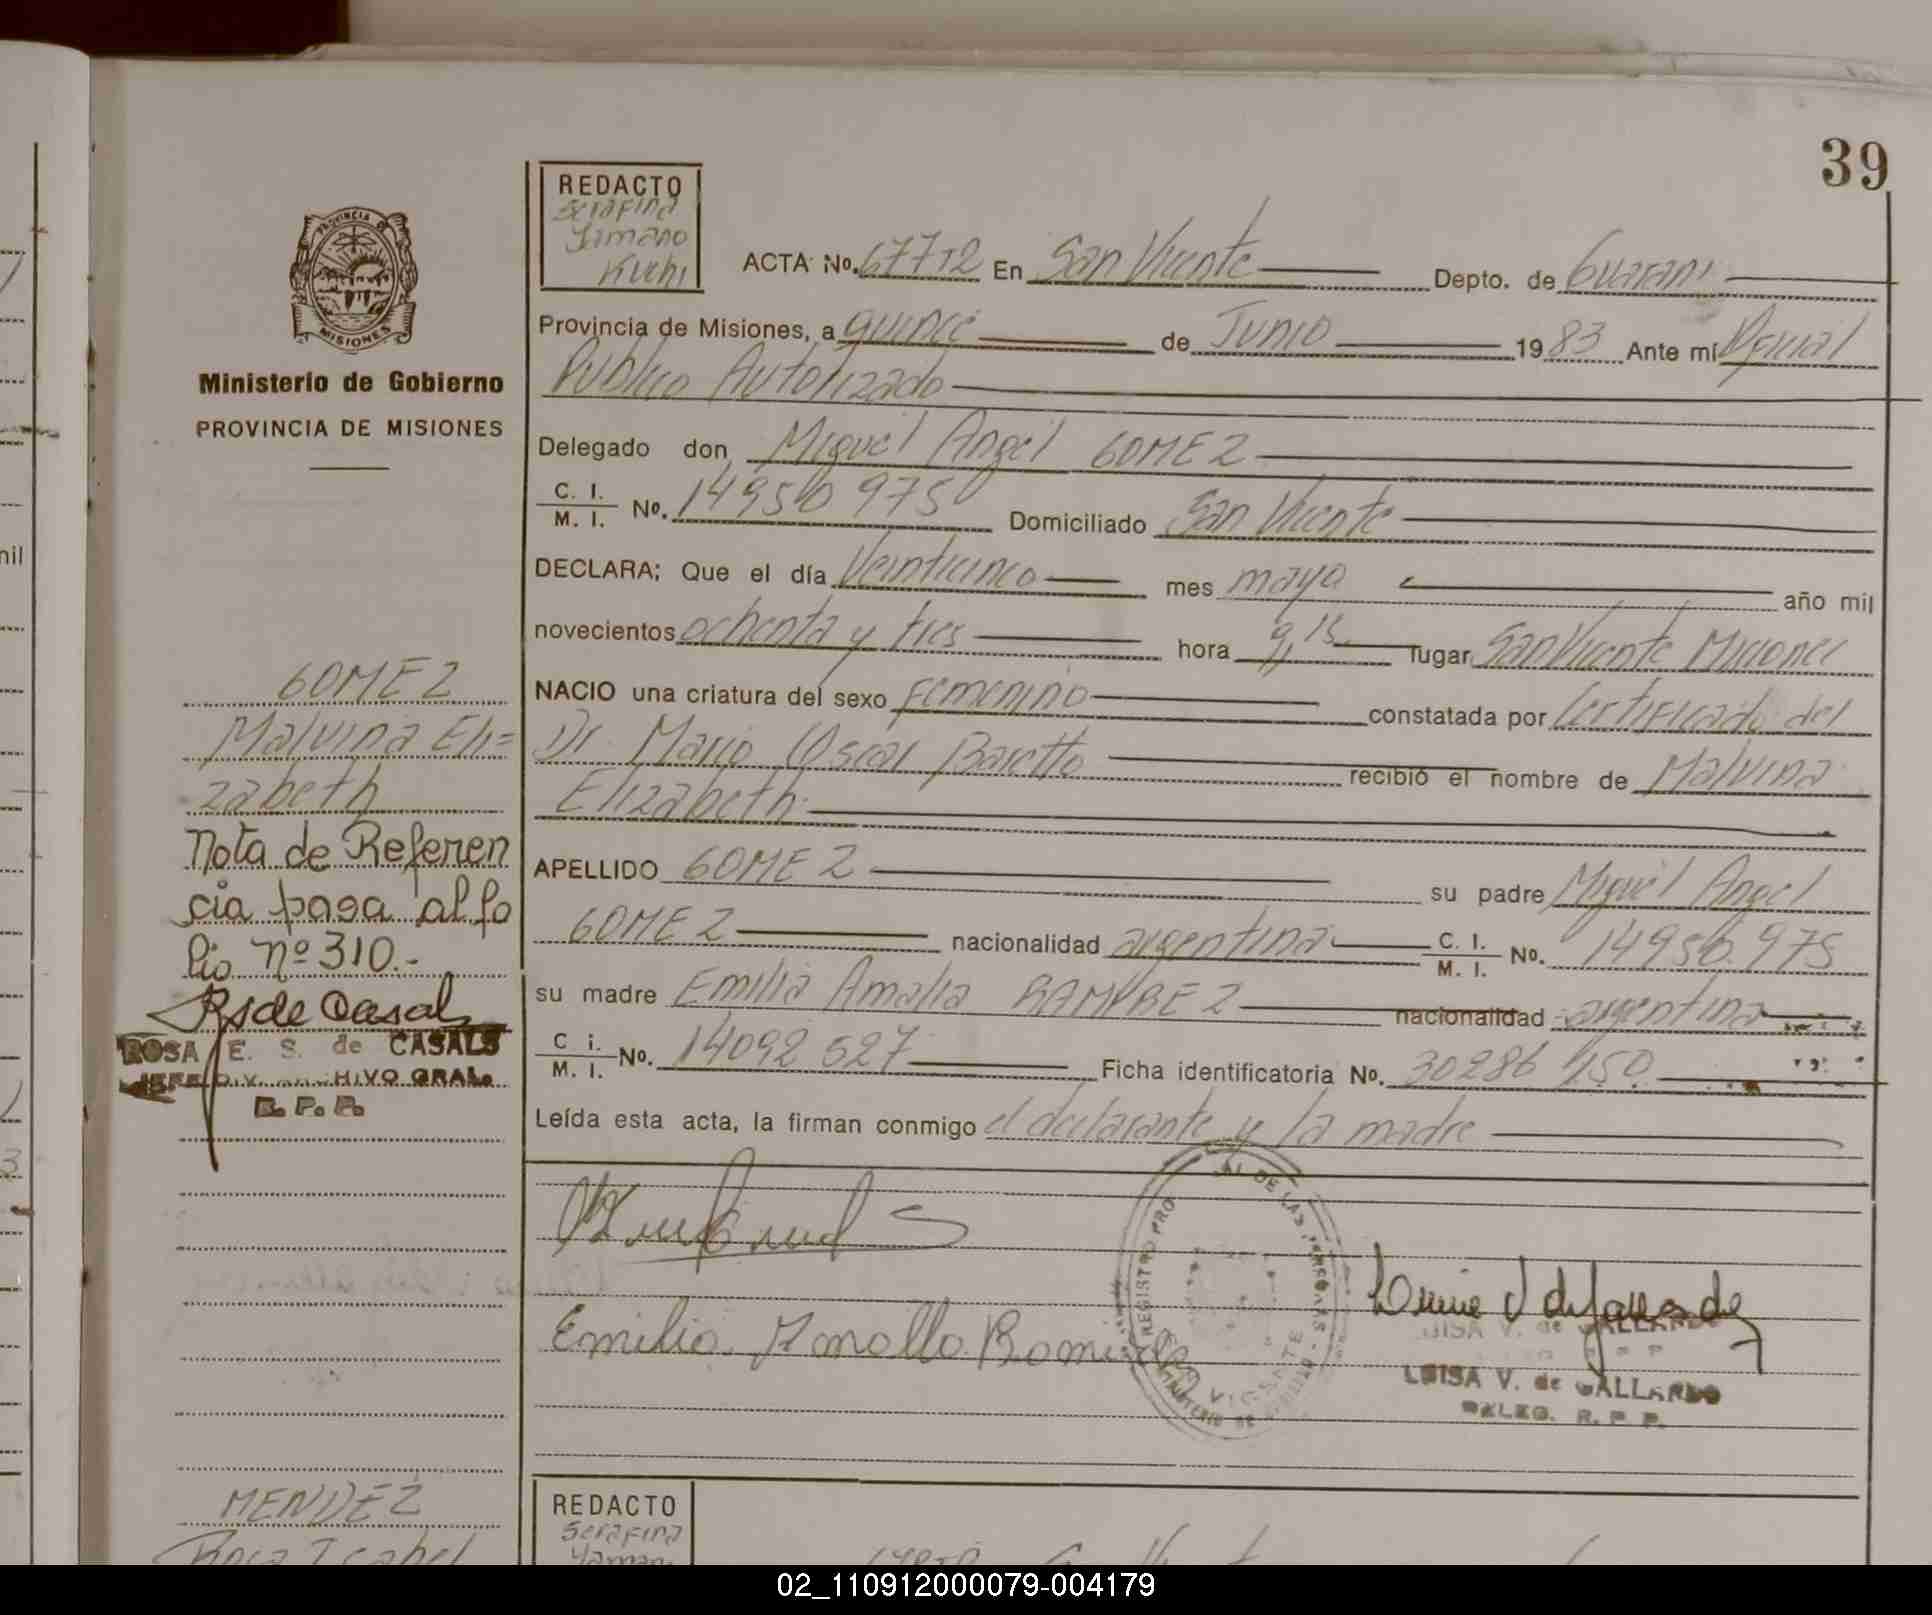 39
PROVINCIA DE
MISIONES
Ministerio de Gobierno
PROVINCIA DE MISIONES
REDACTO
Serafina
Yamano
Kuchi
ACTA No. 677T2 En San Vicente Depto. de Guarani
Provincia de Misiones, a quince de Junio 1983 Ante mí Oficial
Publico Autorizado
Delegado don Miguel Angel GOMEZ
C. I. / M. I. No. 14950975 Domiciliado San Vicente
DECLARA; Que el día Veinticinco mes mayo año mil
novecientos ochenta y tres hora 9,15 lugar San Vicente Misiones
NACIO una criatura del sexo Femenino constatada por Certificado del
Dr. Mario Oscar Baretto recibió el nombre de Malvina
Elizabeth
APELLIDO GOMEZ su padre Miguel Angel
GOMEZ nacionalidad argentina C. I. / M. I. No. 14950.975
su madre Emilia Amalia RAMIREZ nacionalidad argentina
C i. / M. I. No. 14092527 Ficha identificatoria No. 30286150
Leída esta acta, la firman conmigo el declarante y la madre
GOMEZ
Malvina Eli=
zabeth
Nota de Referen
cia pasa al fo
lio nº 310.-
Rs de Casals
ROSA E. S. de CASALS
JEFE DIV. ARCHIVO GRAL.
R. P. P.
REGISTRO PRO AL DE LAS PERSONAS
SAN VICENTE
MINISTERIO DE GOBIERNO
LUISA V. de GALLARDO
LUISA V. de GALLARDO
DELEG. R. P. P.
MENDEZ
Rosa Isabel
REDACTO
Serafina
Yaman
nil
3
02_110912000079-004179